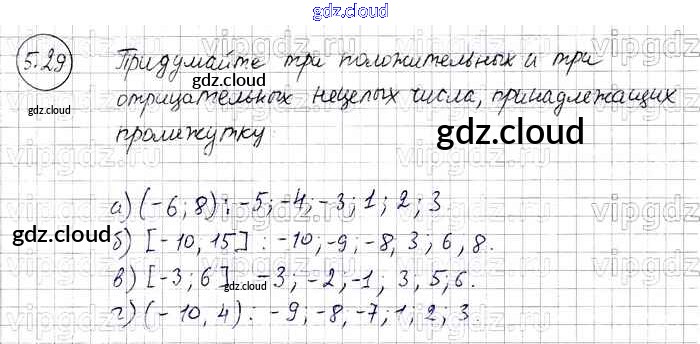 gdz.cloud
5.29 Придумайте три положительных и три
gdz.cloud
gdz.cloud
отрицательных нецелых числа, принадлежащих
промежутку
gdz.cloud
а) (-6; 8) : -5; -4; -3; 1; 2; 3.
б) [-10, 15] : -10; -9; -8, 3; 6, 8.
gdz.cloud
в) [-3; 6] -3; -2; -1; 3, 5; 6.
gdz.cloud
г) (-10, 4) : -9; -8; -7; 1; 2; 3.